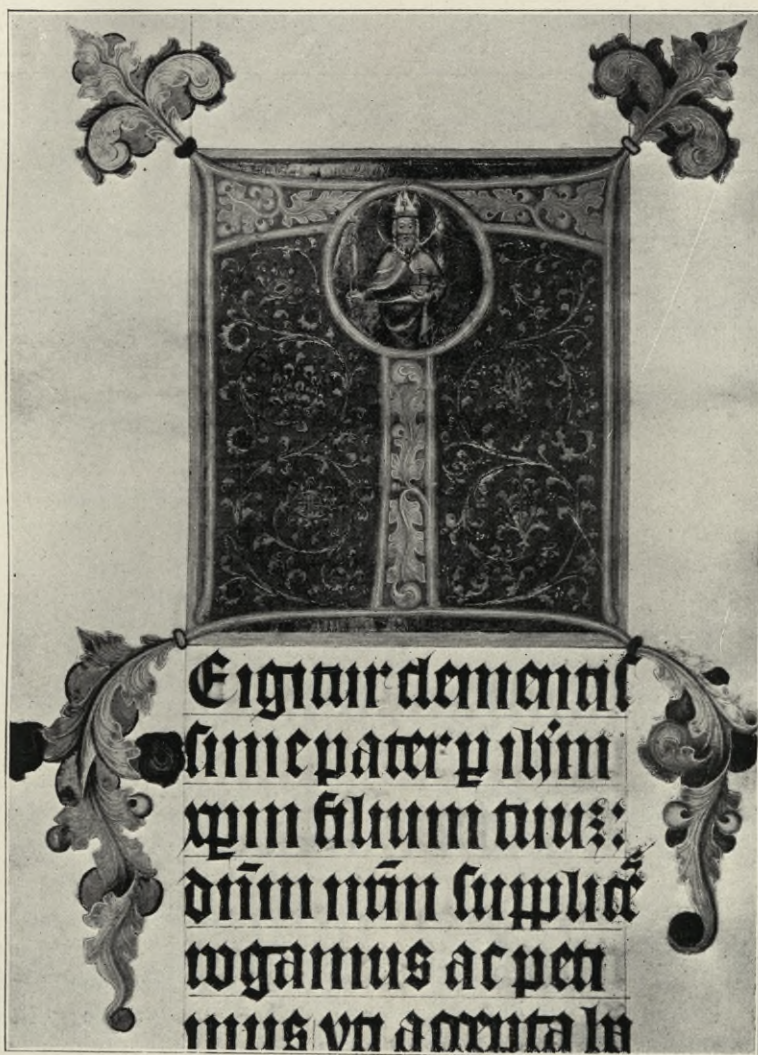 T
Eigitur clementis
sime pater p ihm
xpm filium tuuz:
dnm nrm supplic̄
rogamus ac peti
mus vti accepta ha